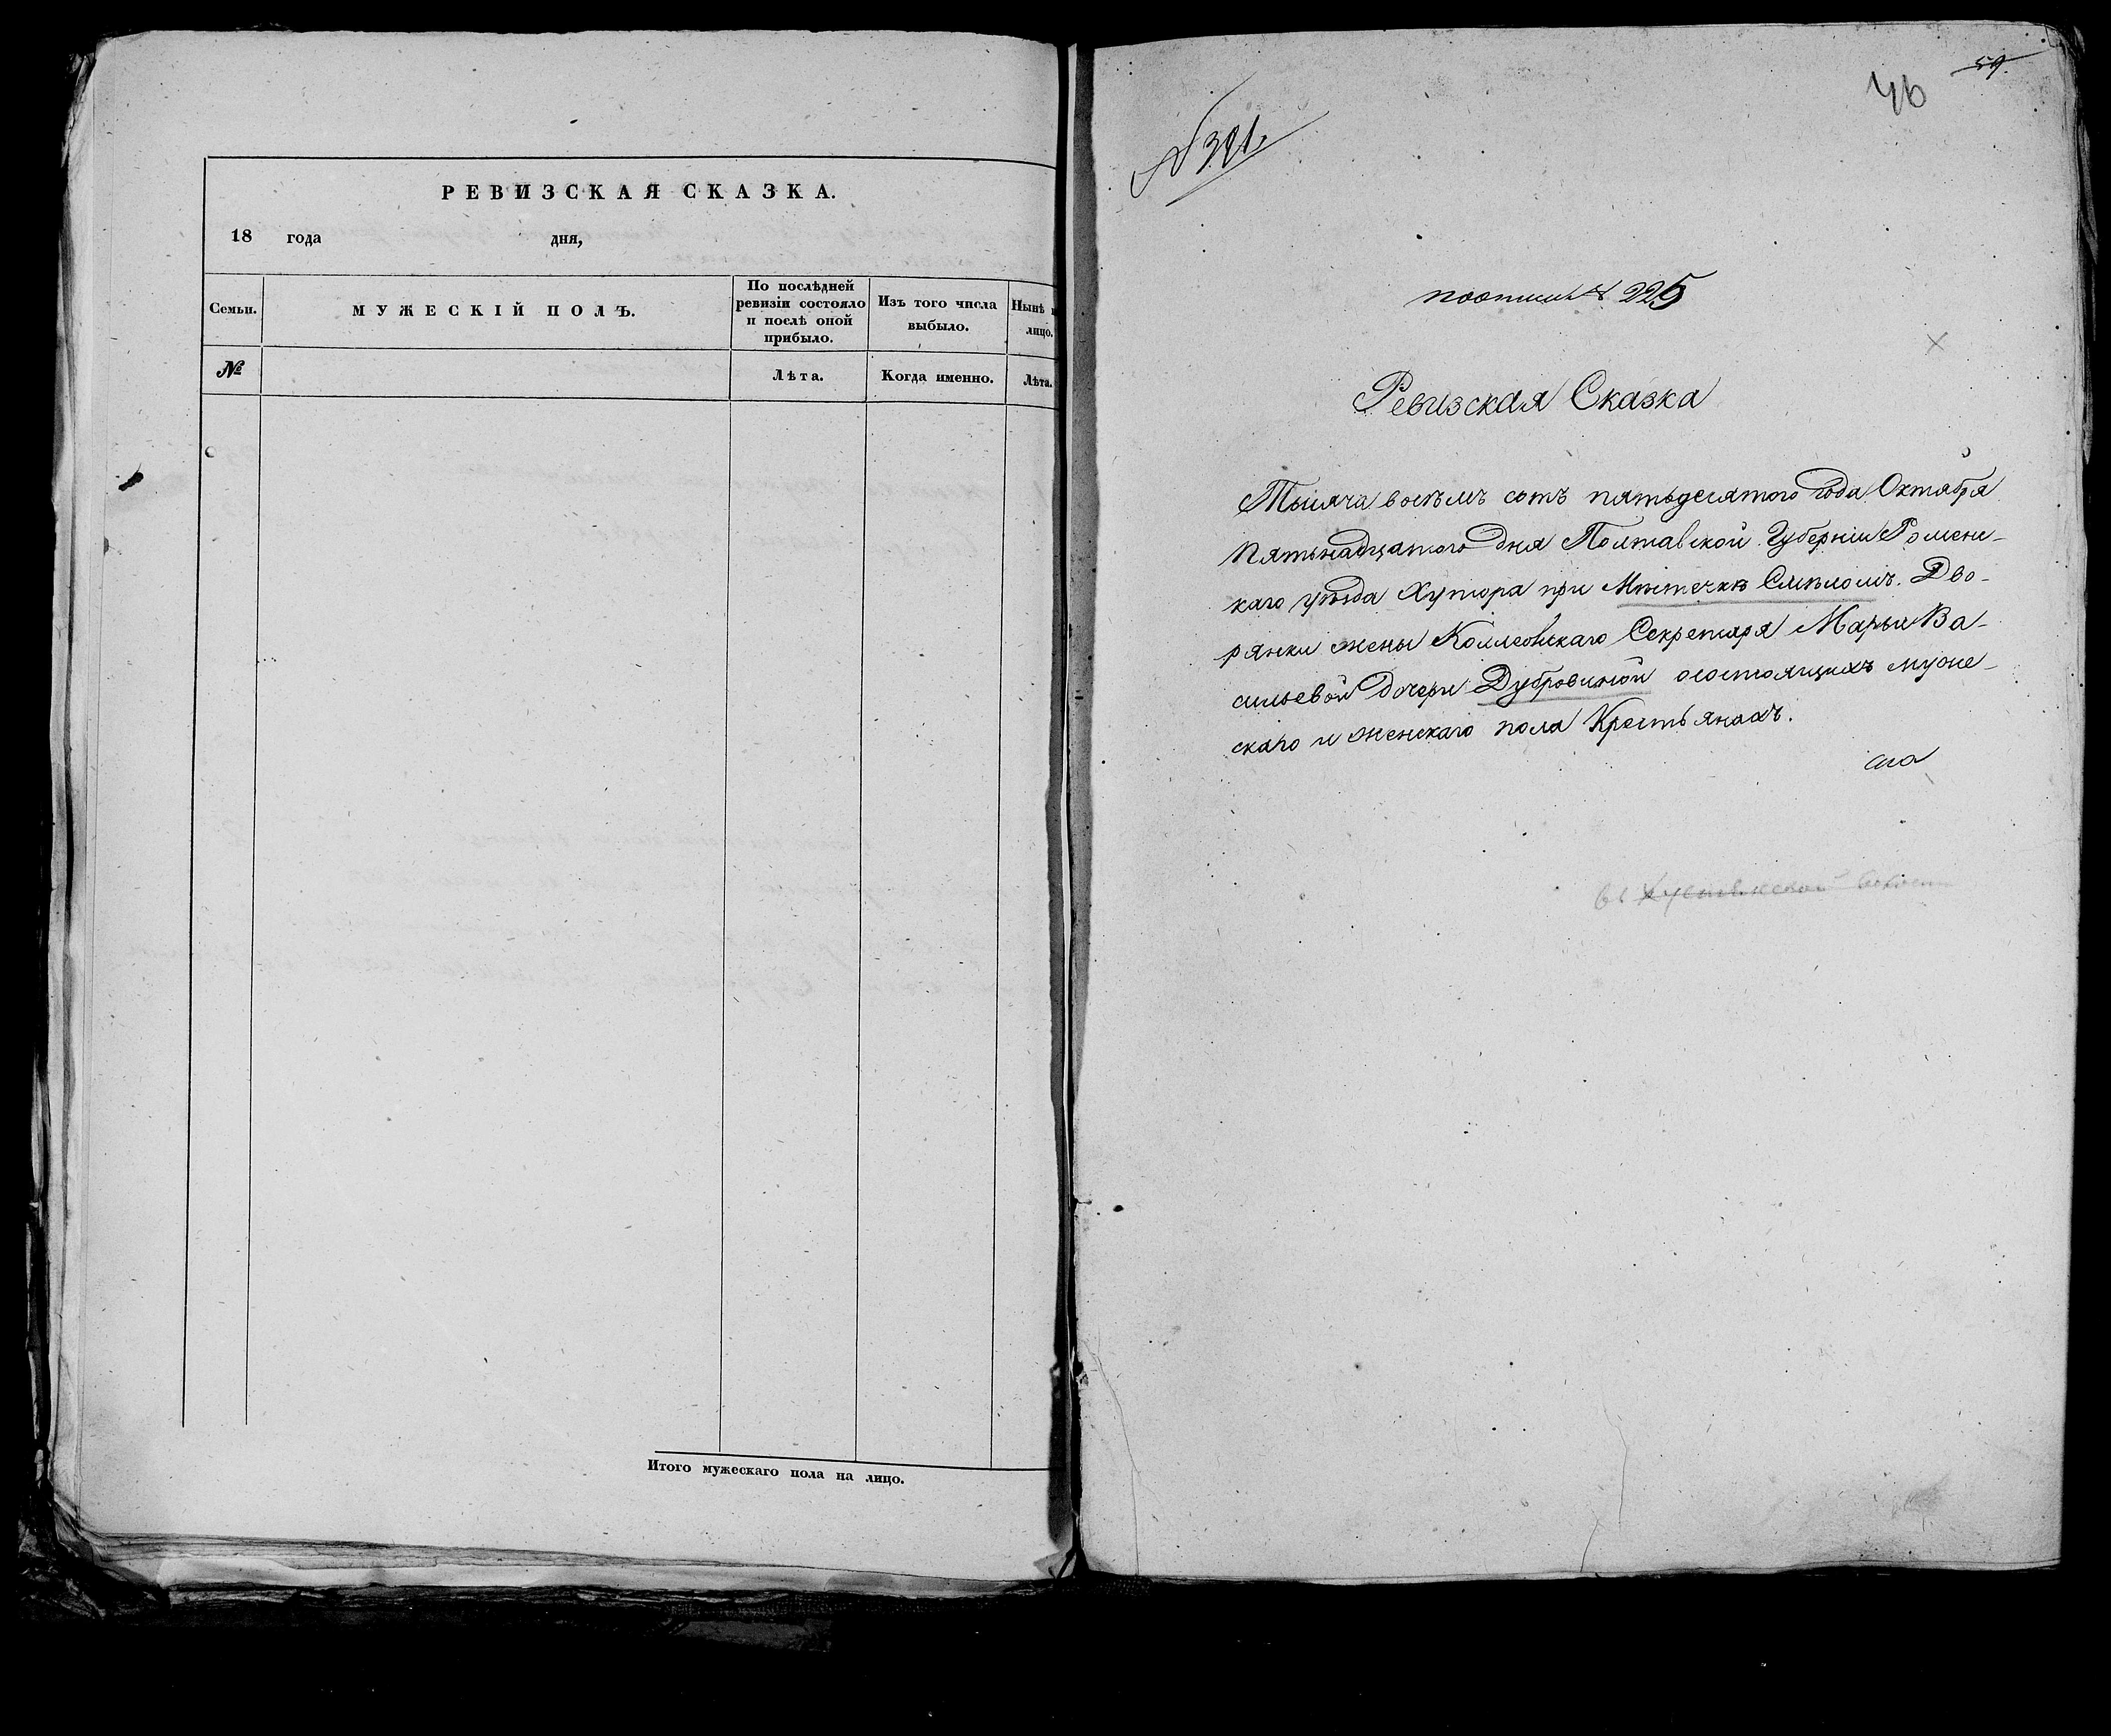 РЕВИЗСКАЯ СКАЗКА.
18 года дня,
Семьи.
МУЖЕСКІЙ ПОЛЪ.
По послѣдней
ревизіи состояло
и послѣ оной
прибыло.
Изъ того числа
выбыло.
Нынѣ н
лицо.
№
Лѣта.
Когда именно.
Лѣта.
Итого мужескаго пола на лицо.
59.
46
№ 391.
по описи № 225
Ревизская Сказка
Тысяча восемъ сотъ пятьдесятого года Октября
Пятьнадцатого дня Полтавской Губерніи Роменс-
каго уѣзда Хутора при Мѣстечкѣ Смѣломъ. Дво-
рянки жены Коллежскаго Секретаря Марьи Ва-
сильевой дочери Дубровиной о состоящихъ муже-
скаго и женскаго пола Крестьянахъ.